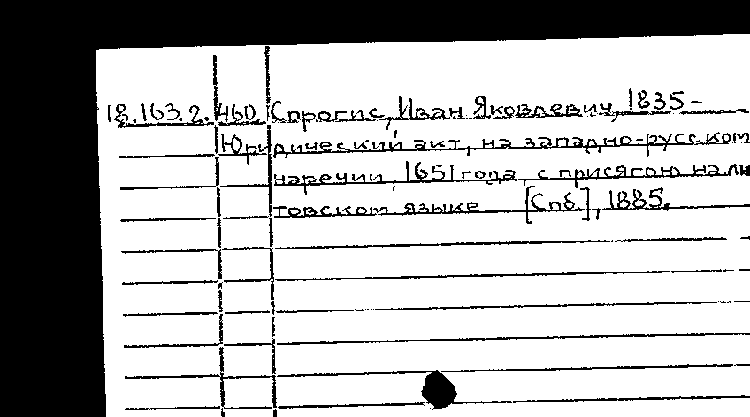 18.163.2. 460 Спрогис, Иван Яковлевич, 1835-
Юридический акт, на западно-русском
наречии, 1651 года, с присягою на ли
товском языке [Спб.], 1885.